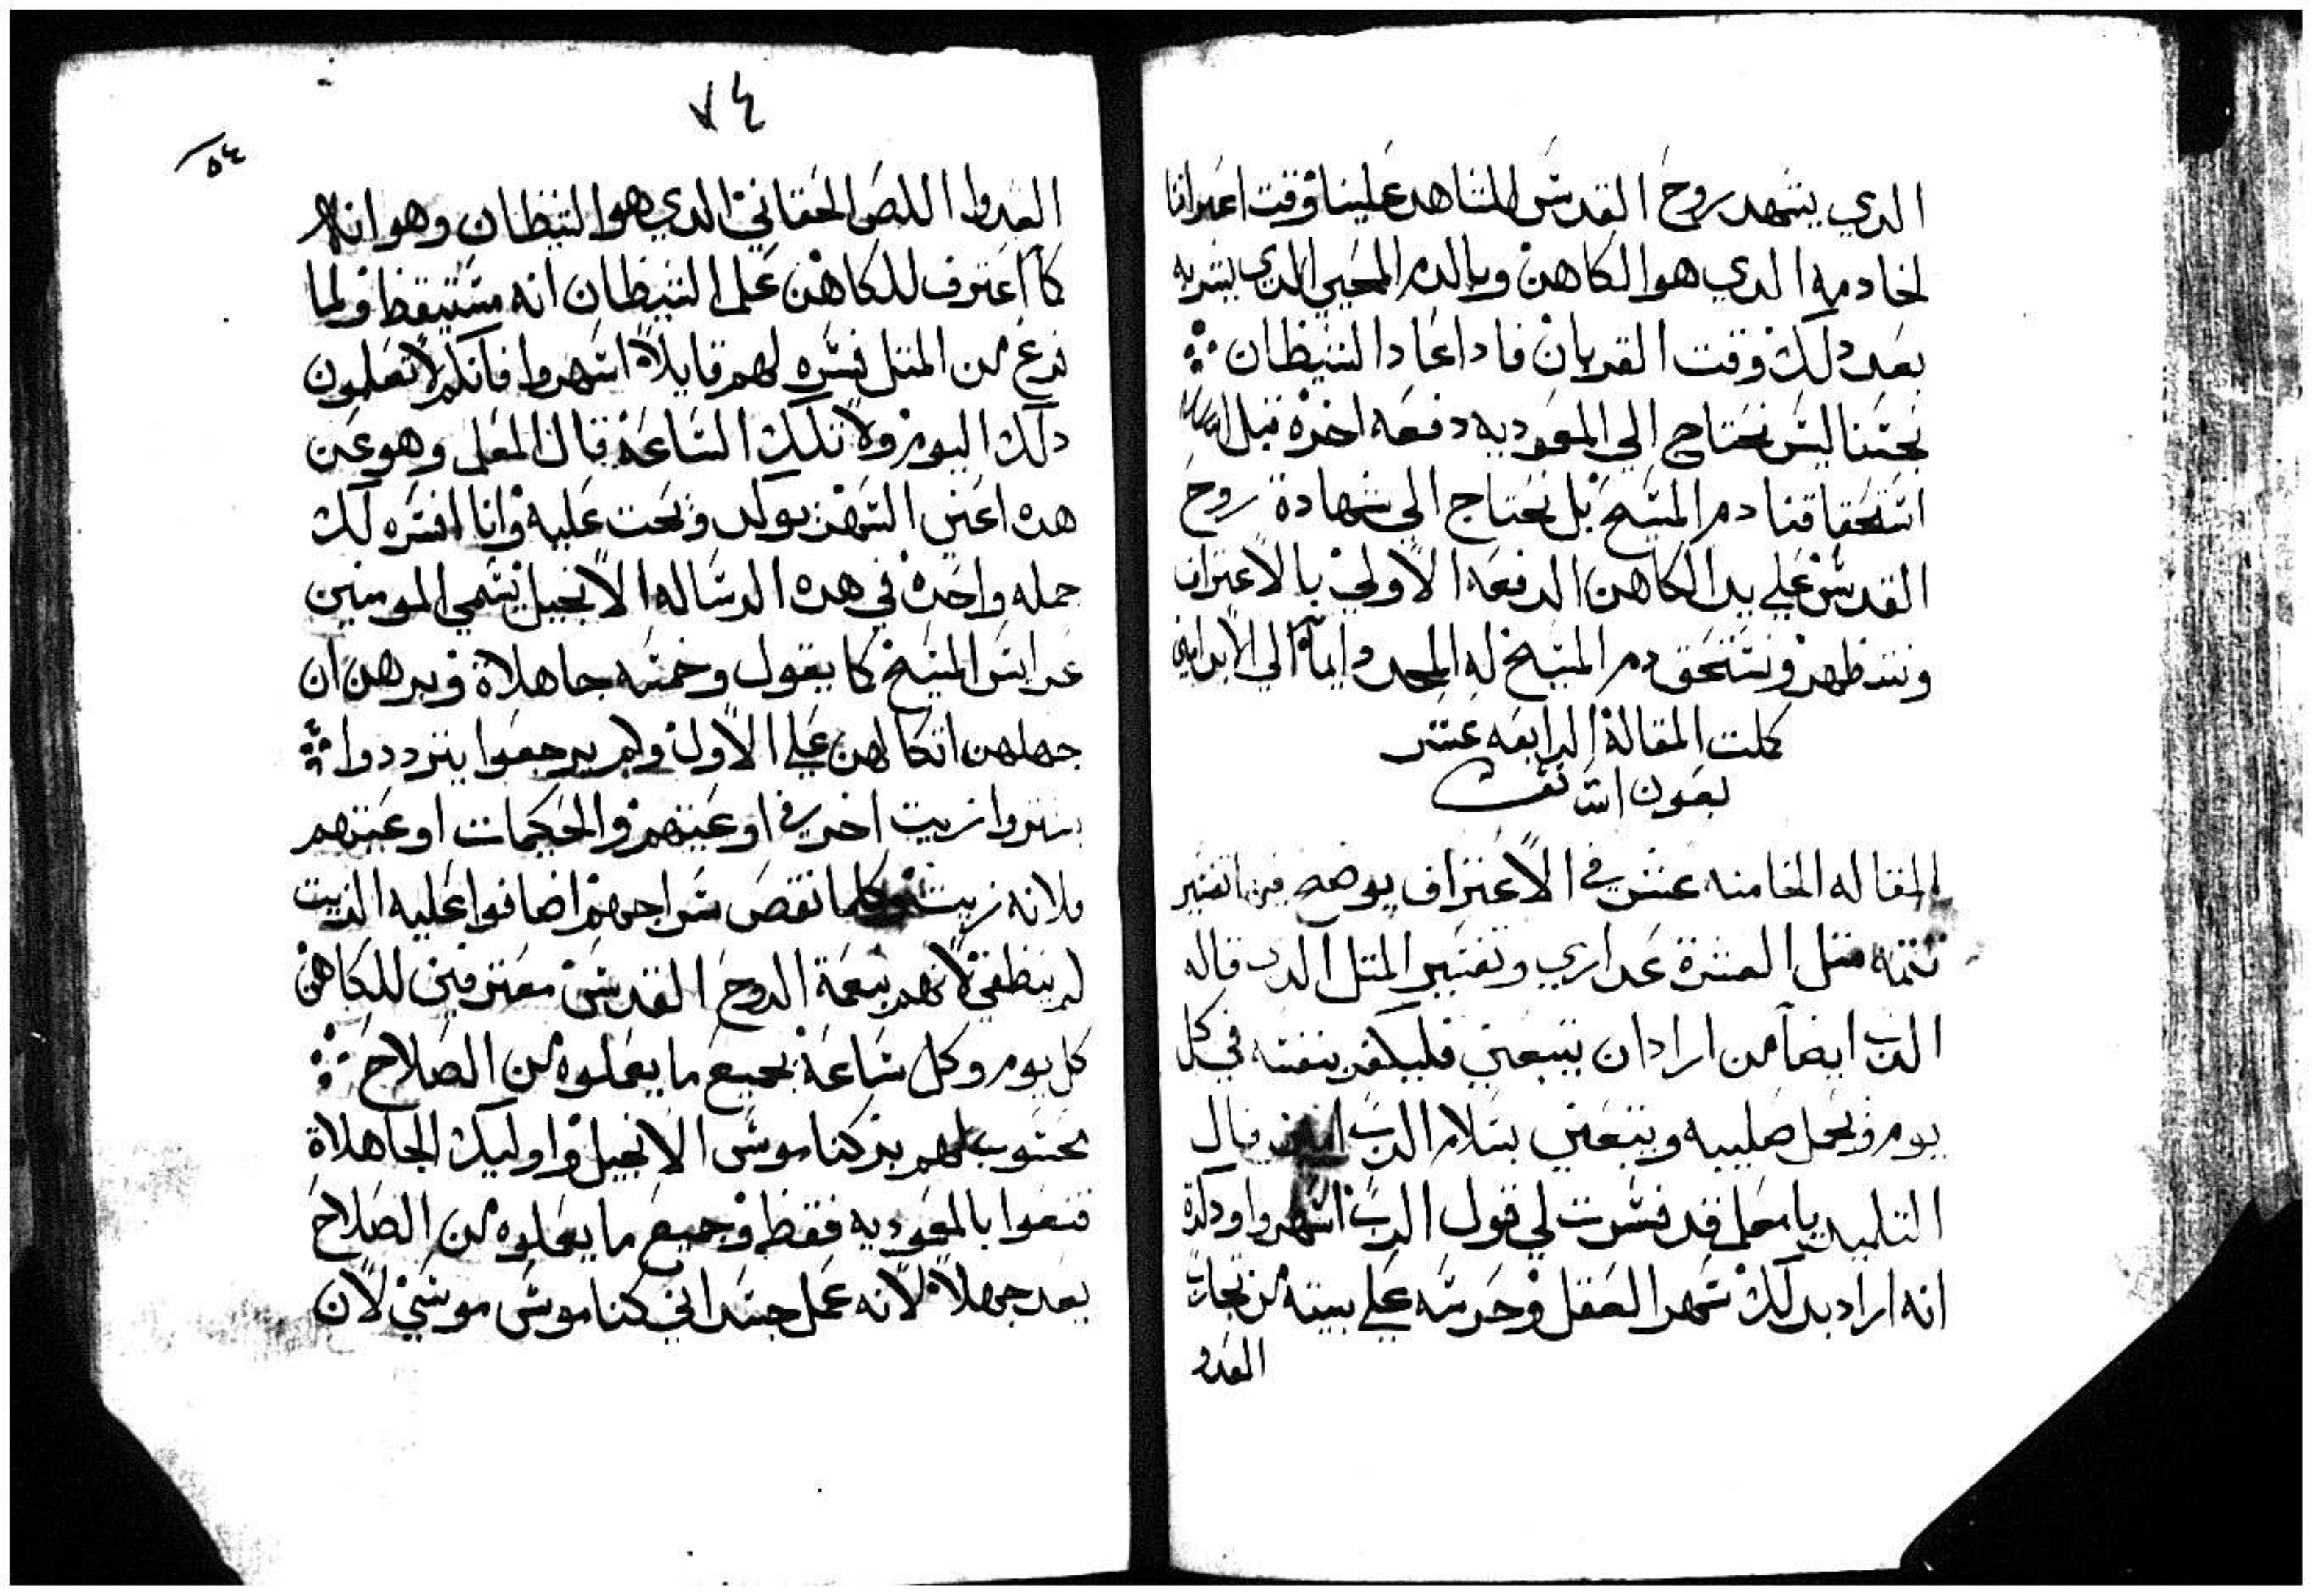 الدي يشهد روح القدس الشاهد علينا وقت اعترافنا
لخادمه الدي هو الكاهن وبالدم المحيي الدي نشربه
بعد دلك وقت القربان فادا عاد الشيطان
نجسنا ليس نحتاج الي المعوديه دفعه اخرة قبل
استحقاقنا دم المسيح بل نحتاج الي شهادة روح
القدس علي يد الكاهن الدفعه الاولي بالاعتراف
ونتطهر ونستحق دم المسيح له المجد دايماً الي الابد امين
كملت المقالة الرابعه عشر
بعون الله
المقاله الخامنه عشر في الاعتراف يوضح فيها تفسير
تتمه متل العشرة عداري وتفسير المتل الدي قاله
الرب ايضاً من اراد ان يتبعني فليكفر بنفسه في كل
يوم ويحمل صليبه ويتبعني بسلام الرب امين قال
التلميد يا معلم قد فسرت لي قول الرب اسهروا ودكرة
انه اراد بدلك سهر العقل وحرسه علي بيته من تجارب
العدو
٧٤
٥٤
العدوا اللص الحقاني الدي هو الشيطان وهو انه
كلما اعترف للكاهن علي الشيطان انه مستيقظ ولما
فرغ من المتل فسره لهم قايلاً اسهروا فانكم لا تعلمون
دلك اليوم ولا تلك الساعة قال المعلم وهو عن
هده اعني السهر يوكد ويحت عليه وانا افسره لك
جمله واحدة في هده الرساله الانجيل يسمي المومنين
عرايس المسيح كما يقول وخمسه جاهلاة وبرهن ان
جهلهن اتكالهن علي الاول ولم يرجعوا يترددوا
يشتروا زيت اخر في اوعيتهم والحكيمات اوعيتهم
ملانه زيت وكلما نقص سراجهم اضافوا عليه الزيت
لم ينطفي لانهم بنعمة الروح القدس معترفين للكاهن
كل يوم وكل ساعة بجميع ما يعملوه من الصلاح
محسوب لهم بزكنا موسي الانجيل واوليك الجاهلاة
قنعوا بالمعوديه فقط وجميع ما يعملوه من الصلاح
يعد جهلاً لانه عمل جسداني كناموس موسي لان